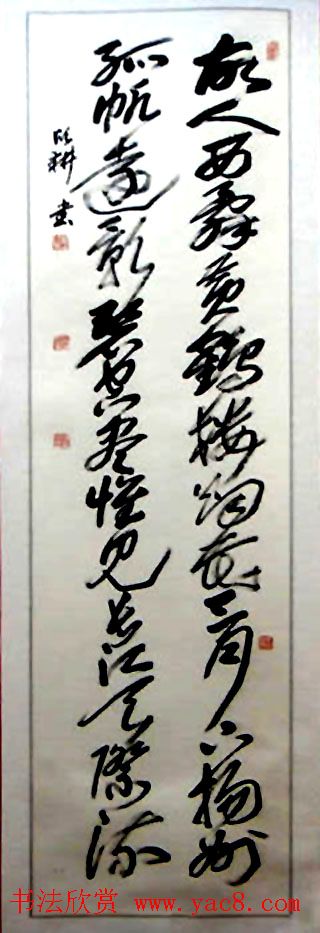 故人西辞黄鹤楼烟花三月下扬州
孤帆远影碧空尽惟见长江天际流
耕书
书法欣赏 www.yac8.com